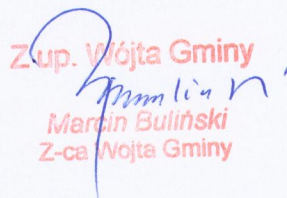 Z up. Wójta Gminy
Marcin Buliński
Z-ca Wojta Gminy